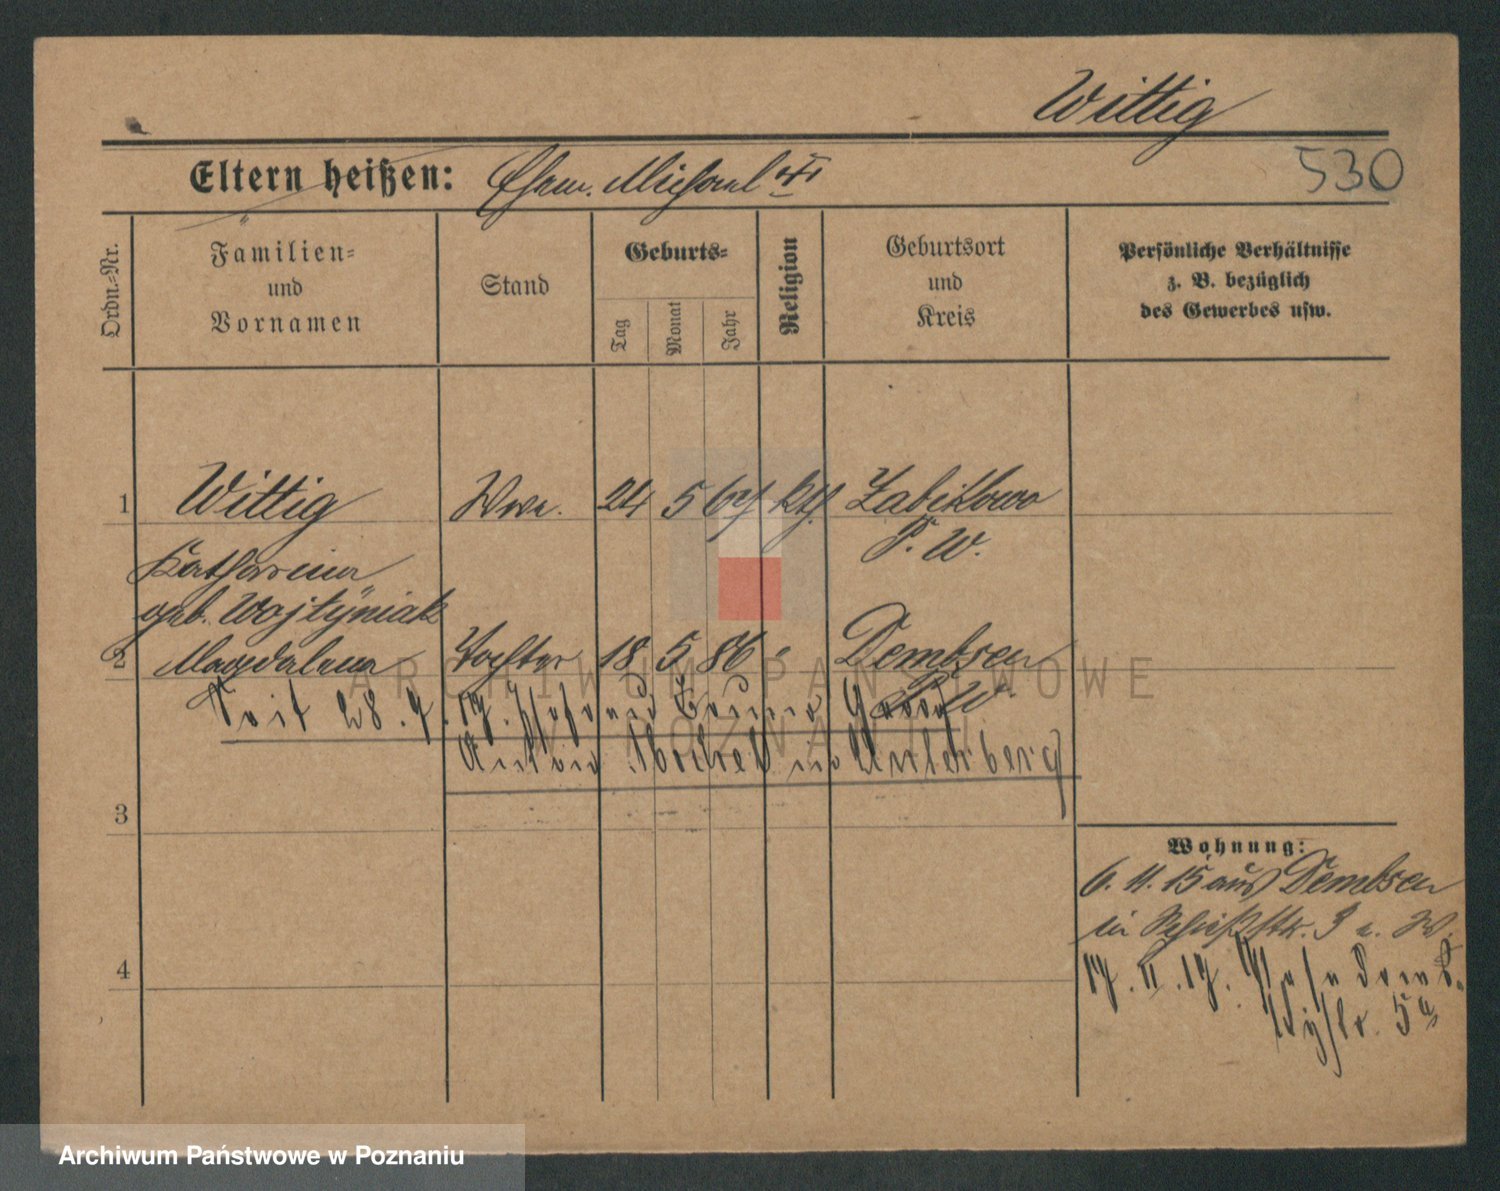 Wittig
Eltern heißen: Ehem. Michael
530
Ordn.-Nr.
Familien-
und
Vornamen
Stand
Geburts-
Tag
Monat
Jahr
Religion
Geburtsort
und
Kreis
Persönliche Verhältnisse
z. B. bezüglich
des Gewerbes usw.
1 Wittig Wwe. 24 5 67 kth. Zabikowo
P. W.
Katharina
geb. Wojtyniak
2 Magdalena Tochter 18 5 86 " Dembsen
P. W.
Seit 28.7.17.
Anton in Unterberg
3
4
Wohnung:
6. 11. 15 aus Dembsen
in 3 W.
17. II. 17.
5a
ARCHIWUM PAŃSTWOWE
W POZNANIU
Archiwum Państwowe w Poznaniu